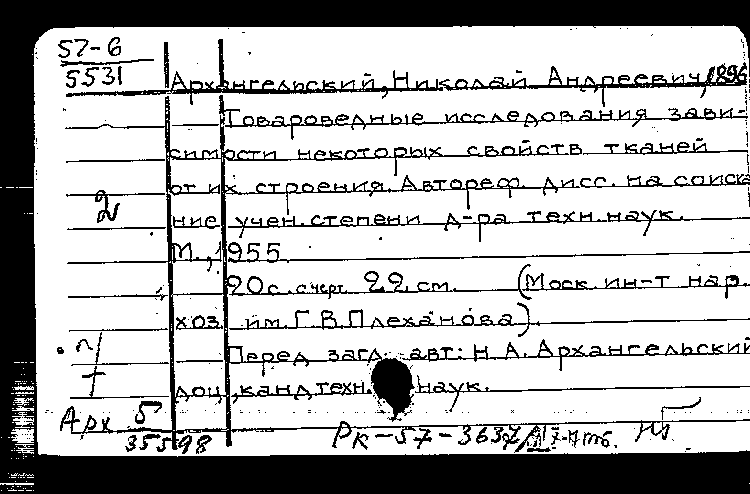 57-6
5531
Архангельский, Николай Андреевич, 1896
Товароведные исследования зави-
симости некоторых свойств тканей
от их строения. Автореф. дисс. на соиска
ние учен. степени д-ра техн. наук.
М., 1955.
20 с. с черт. 22 см. (Моск. ин-т нар.
хоз. им. Г. В. Плеханова).
Перед загл. авт.: Н. А. Архангельский
доц., канд. техн. наук.
Арх 5
35598
РК-57-3637